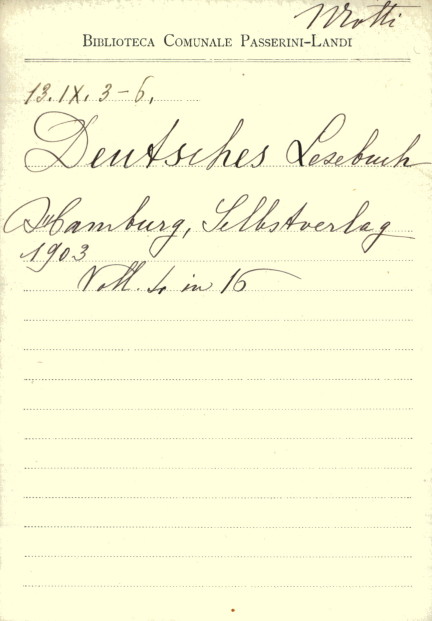 Motti
BIBLIOTECA COMUNALE PASSERINI-LANDI
13.IX. 3-6.
Deutsches Lesebuch
Hamburg, Selbstverlag
1903
Voll. 4 in 16